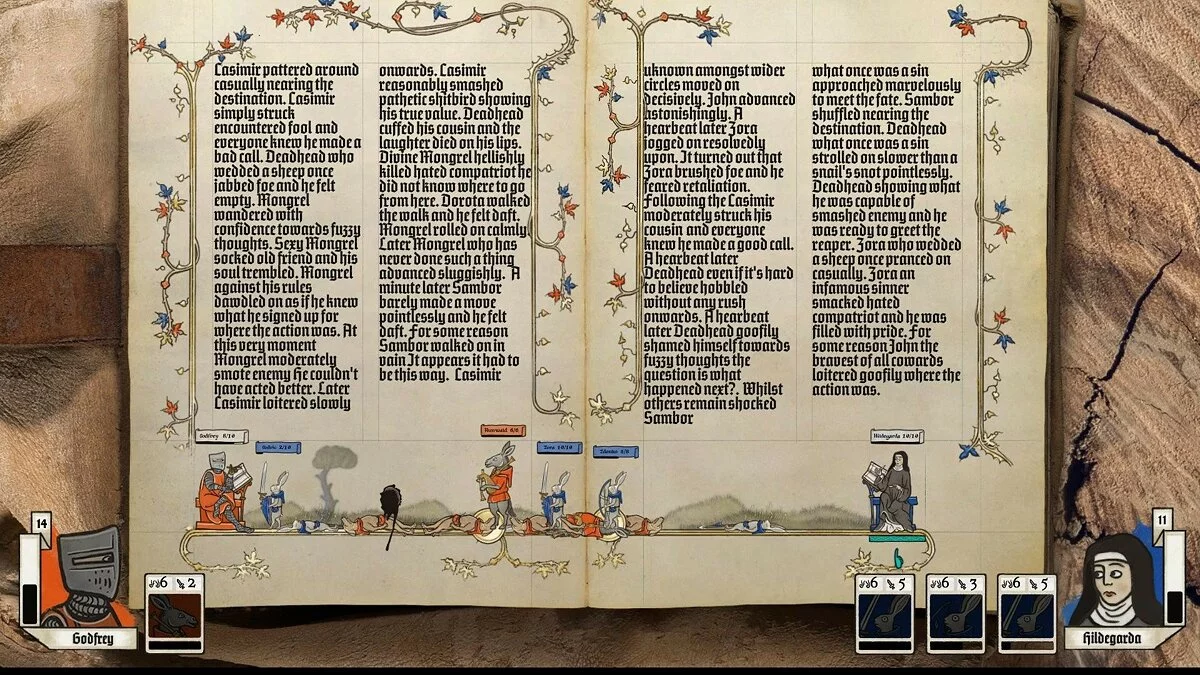 Casimir pattered around
casually nearing the
destination. Casimir
simply struck
encountered fool and
everyone knew he made a
bad call. Deadhead who
wedded a sheep once
jabbed foe and he felt
empty. Mongrel
wandered with
confidence towards fuzzy
thoughts. Sexy Mongrel
socked old friend and his
soul trembled. Mongrel
against his rules
dawdled on as if he knew
what he signed up for
where the action was. At
this very moment
Mongrel moderately
smote enemy He couldn't
have acted better. Later
Casimir loitered slowly
onwards. Casimir
reasonably smashed
pathetic shitbird showing
his true value. Deadhead
cuffed his cousin and the
laughter died on his lips.
Divine Mongrel hellishly
killed hated compatriot he
did not know where to go
from here. Dorota walked
the walk and he felt daft.
Mongrel rolled on calmly.
Later Mongrel who has
never done such a thing
advanced sluggishly. A
minute later Sambor
barely made a move
pointlessly and he felt
daft. For some reason
Sambor walked on in
vain It appears it had to
be this way. Casimir
uknown amongst wider
circles moved on
decisively. John advanced
astonishingly. A
hearbeat later Zora
jogged on resolvedly
upon. It turned out that
Zora brushed foe and he
feared retaliation.
Following the Casimir
moderately struck his
cousin and everyone
knew he made a good call.
A hearbeat later
Deadhead even if it's hard
to believe hobbled
without any rush
onwards. A hearbeat
later Deadhead goofily
shamed himself towards
fuzzy thoughts the
question is what
happened next?. Whilst
others remain shocked
Sambor
what once was a sin
approached marvelously
to meet the fate. Sambor
shuffled nearing the
destination. Deadhead
what once was a sin
strolled on slower than a
snail's snot pointlessly.
Deadhead showing what
he was capable of
smashed enemy and he
was ready to greet the
reaper. Zora who wedded
a sheep once pranced on
casually. Zora an
infamous sinner
smacked hated
compatriot and he was
filled with pride. For
some reason John the
bravest of all cowards
loitered goofily where the
action was.
Godfrey 8/10
2/10
6/6
Zora 10/10
8/8
Hildegarda 10/10
14
Godfrey
6 2
6 5
6 3
6 5
11
Hildegarda